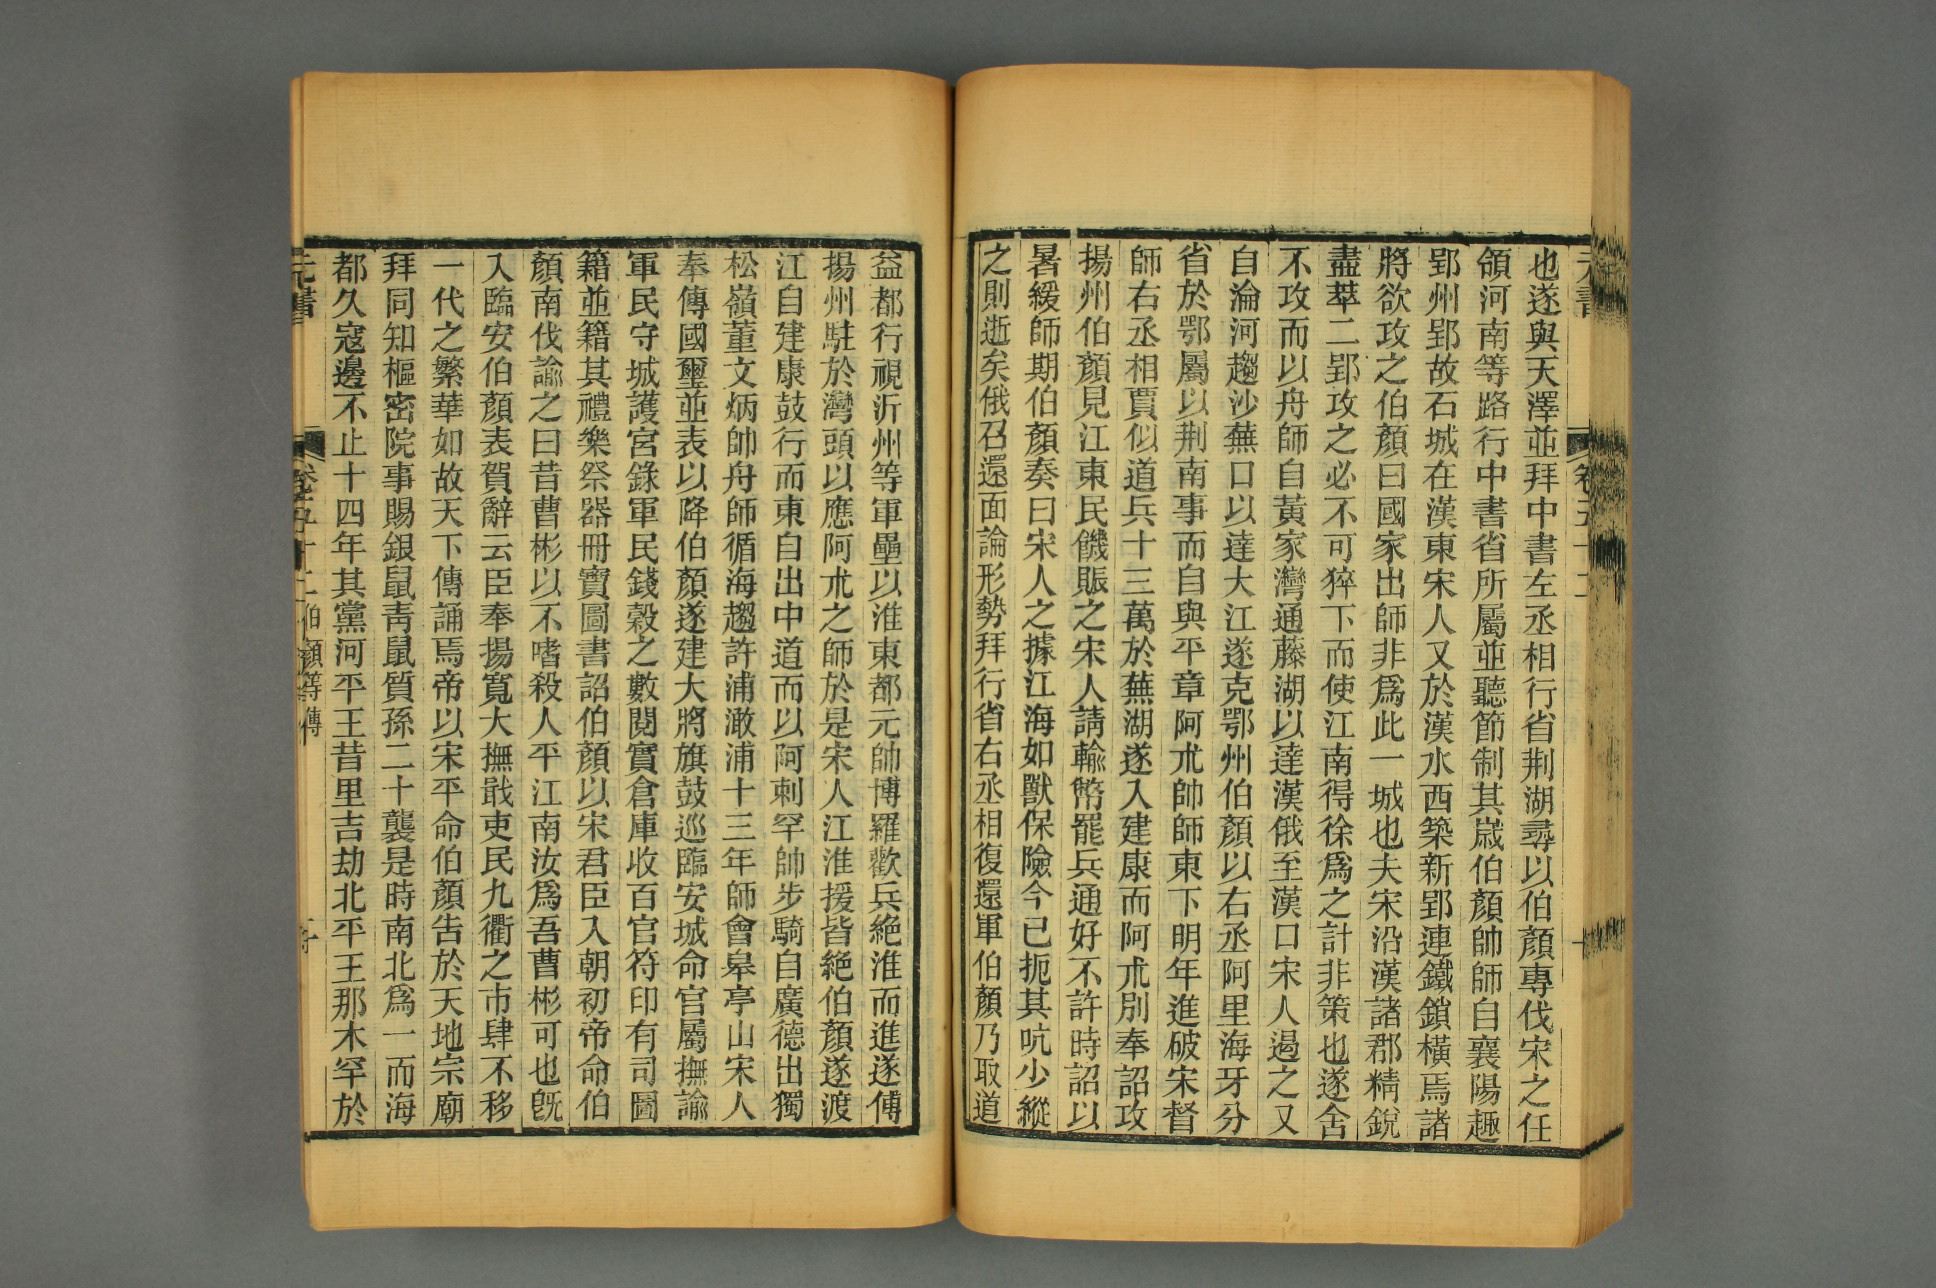 也遂與天澤並拜中書左丞相行省荆湖尋以伯顏專伐宋之任
領河南等路行中書省所屬並聽節制其歲伯顏帥師自襄陽趣
郢州郢故石城在漢東宋人又於漢水西築新郢連鐵鎖橫焉諸
將欲攻之伯顏曰國家出師非爲此一城也夫宋沿漢諸郡精銳
盡萃二郢攻之必不可猝下而使江南得徐爲之計非策也遂舍
不攻而以舟師自黃家灣通藤湖以達漢俄至漢口宋人遏之又
自淪河趨沙蕪口以達大江遂克鄂州伯顏以右丞阿里海牙分
省於鄂屬以荆南事而自與平章阿朮帥師東下明年進破宋督
師右丞相賈似道兵十三萬於蕪湖遂入建康而阿朮別奉詔攻
揚州伯顏見江東民饑賑之宋人請輸幣罷兵通好不許時詔以
暑緩師期伯顏奏曰宋人之據江海如獸保險今已扼其吭少縱
之則逝矣俄召還面論形勢拜行省右丞相復還軍伯顏乃取道
益都行視沂州等軍壘以淮東都元帥博羅歡兵絶淮而進遂傅
揚州駐於灣頭以應阿朮之師於是宋人江淮援皆絶伯顏遂渡
江自建康鼓行而東自出中道而以阿剌罕帥步騎自廣德出獨
松嶺董文炳帥舟師循海趨許浦澉浦十三年師會皋亭山宋人
奉傳國璽並表以降伯顏遂建大將旗鼓巡臨安城命官屬撫諭
軍民守城護宮錄軍民錢穀之數閱實倉庫收百官符印有司圖
籍並籍其禮樂祭器冊寶圖書詔伯顏以宋君臣入朝初帝命伯
顏南伐諭之曰昔曹彬以不嗜殺人平江南汝爲吾曹彬可也旣
入臨安伯顏表賀辭云臣奉揚寬大撫戢吏民九衢之市肆不移
一代之繁華如故天下傳誦焉帝以宋平命伯顏告於天地宗廟
拜同知樞密院事賜銀鼠靑鼠質孫二十襲是時南北爲一而海
都久寇邊不止十四年其黨河平王昔里吉劫北平王那木罕於
元書
卷五十二 伯顏等傳